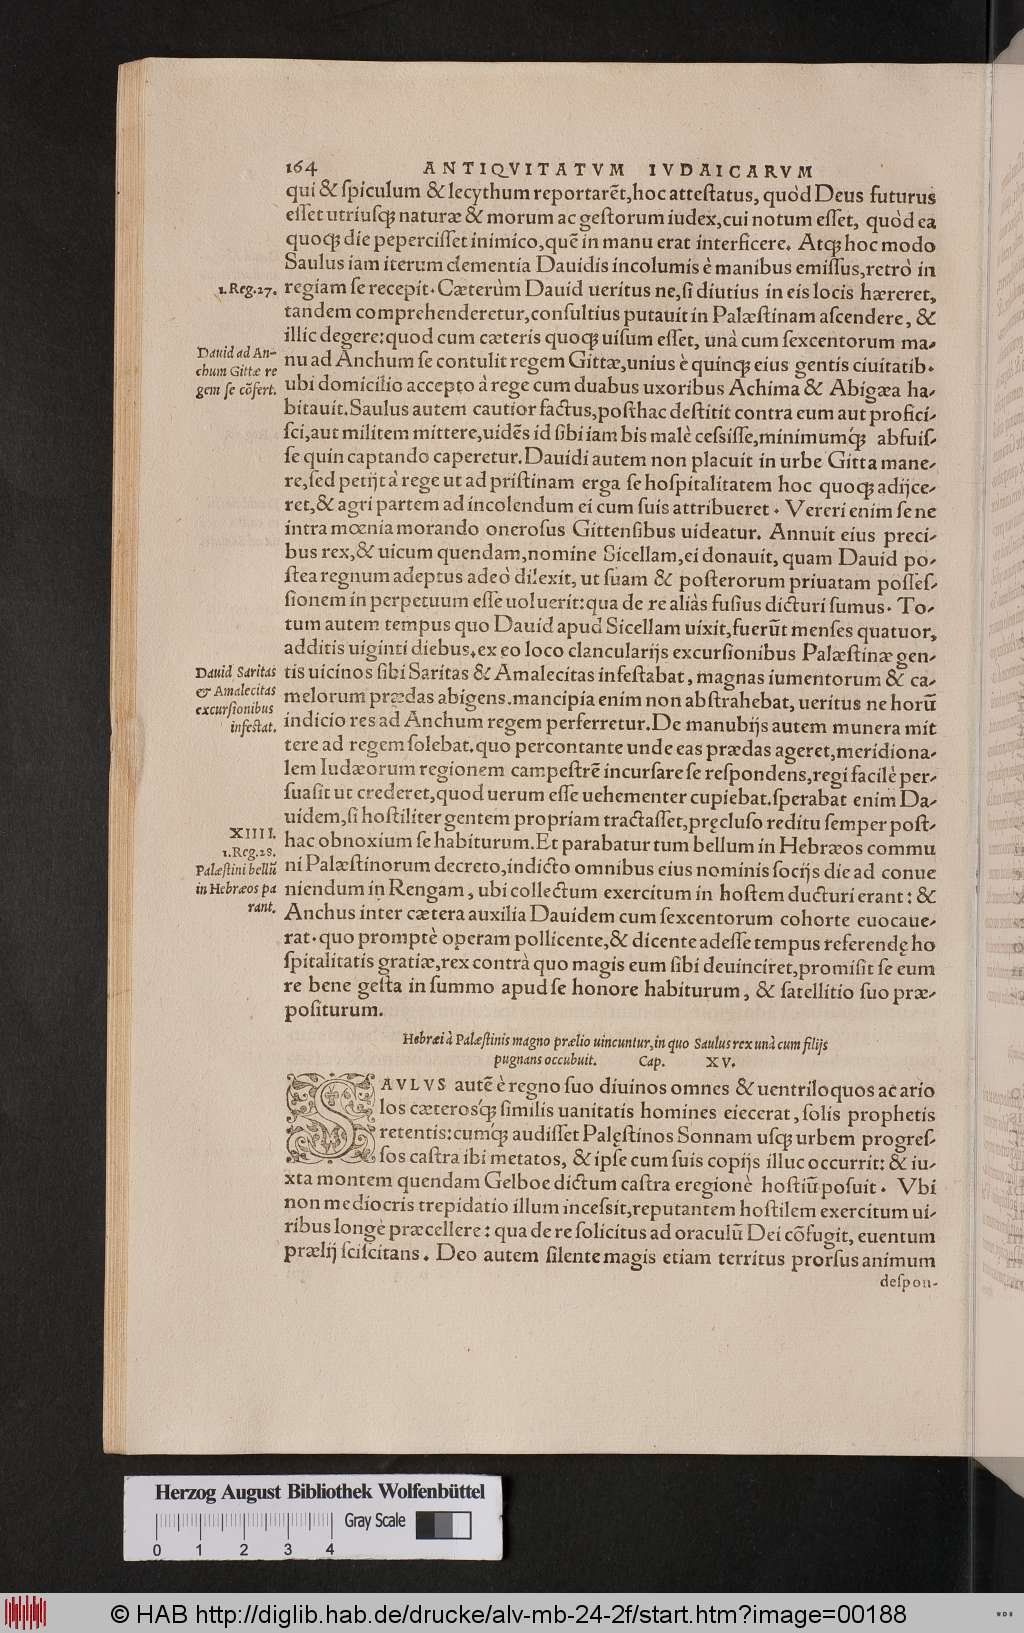 164 ANTIQVITATVM IVDAICARVM
qui & ſpiculum & lecythum reportarẽt, hoc atteſtatus, quòd Deus futurus
eſſet utriuſqꝫ naturæ & morum ac geſtorum iudex, cui notum eſſet, quòd ea
quoqꝫ die peperciſſet inimico, quẽ in manu erat interficere. Atqꝫ hoc modo
Saulus iam iterum clementia Dauidis incolumis è manibus emiſſus, retrò in
1.Reg.27.
regiam ſe recepit. Cæterùm Dauid ueritus ne, ſi diutius in eis locis hæreret,
tandem comprehenderetur, conſultius putauit in Palæſtinam aſcendere, &
illic degere: quod cum cæteris quoqꝫ uiſum eſſet, unà cum ſexcentorum ma-
Dauid ad An-
chum Gittæ re
gem ſe cõfert.
nu ad Anchum ſe contulit regem Gittæ, unius è quinqꝫ eius gentis ciuitatib.
ubi domicilio accepto à rege cum duabus uxoribus Achima & Abigæa ha-
bitauit. Saulus autem cautior factus, poſthac deſtitit contra eum aut profici-
ſci, aut militem mittere, uidẽs id ſibi iam bis malè ceſsiſſe, minimumqꝫ́ abfuiſ-
ſe quin captando caperetur. Dauidi autem non placuit in urbe Gitta mane-
re, ſed petijt à rege ut ad priſtinam erga ſe hoſpitalitatem hoc quoqꝫ adijce-
ret, & agri partem ad incolendum ei cum ſuis attribueret. Vereri enim ſe ne
intra mœnia morando oneroſus Gittenſibus uideatur. Annuit eius preci-
bus rex, & uicum quendam, nomine Sicellam, ei donauit, quam Dauid po-
ſtea regnum adeptus adeò dilexit, ut ſuam & poſterorum priuatam poſſeſ-
ſionem in perpetuum eſſe uoluerit: qua de re aliàs fuſius dicturi ſumus. To-
tum autem tempus quo Dauid apud Sicellam uixit, fuerũt menſes quatuor,
additis uiginti diebus, ex eo loco clancularijs excurſionibus Palæſtinæ gen-
Dauid Saritas
& Amalecitas
excurſionibus
infeſtat.
tis uicinos ſibi Saritas & Amalecitas infeſtabat, magnas iumentorum & ca-
melorum prædas abigens. mancipia enim non abſtrahebat, ueritus ne horũ
indicio res ad Anchum regem perferretur. De manubijs autem munera mit
tere ad regem ſolebat. quo percontante unde eas prædas ageret, meridiona-
lem Iudæorum regionem campeſtrẽ incurſare ſe reſpondens, regi facilè per-
ſuaſit ut crederet, quod uerum eſſe uehementer cupiebat. ſperabat enim Da-
uidem, ſi hoſtiliter gentem propriam tractaſſet, pręcluſo reditu ſemper poſt-
XIIII.
1.Reg.28.
Palæſtini bellũ
in Hebræos pa
rant.
hac obnoxium ſe habiturum. Et parabatur tum bellum in Hebræos commu
ni Palæſtinorum decreto, indicto omnibus eius nominis ſocijs die ad conue
niendum in Rengam, ubi collectum exercitum in hoſtem ducturi erant: &
Anchus inter cætera auxilia Dauidem cum ſexcentorum cohorte euocaue-
rat. quo promptè operam pollicente, & dicente adeſſe tempus referendę ho
ſpitalitatis gratiæ, rex contrà quo magis eum ſibi deuinciret, promiſit ſe eum
re bene geſta in ſummo apud ſe honore habiturum, & ſatellitio ſuo præ-
poſiturum.
Hebræi à Palæſtinis magno prælio uincuntur, in quo Saulus rex unà cum filijs
pugnans occubuit. Cap. XV.
SAVLVS autẽ è regno ſuo diuinos omnes & uentriloquos ac ario
los cæterosqꝫ́ ſimilis uanitatis homines eiecerat, ſolis prophetis
retentis: cumqꝫ́ audiſſet Palęſtinos Sonnam uſqꝫ urbem progreſ-
ſos caſtra ibi metatos, & ipſe cum ſuis copijs illuc occurrit: & iu-
xta montem quendam Gelboe dictum caſtra eregionè hoſtiũ poſuit. Vbi
non mediocris trepidatio illum inceſsit, reputantem hoſtilem exercitum ui-
ribus longè præcellere: qua de re ſolicitus ad oraculũ Dei cõfugit, euentum
prælij ſciſcitans. Deo autem ſilente magis etiam territus prorſus animum
deſpon-
Herzog August Bibliothek Wolfenbüttel
0 1 2 3 4 Gray Scale
© HAB http://diglib.hab.de/drucke/alv-mb-24-2f/start.htm?image=00188